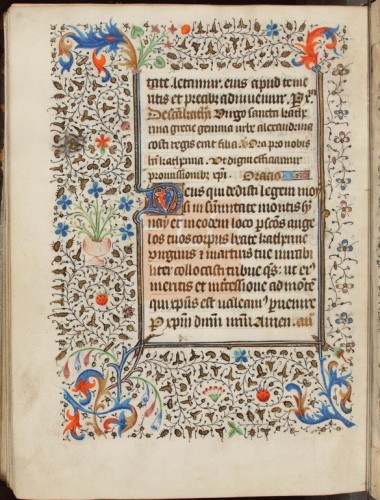 tate letamur. eius apud te me
ritis et precib adiuuemur. P
De sca katherina Virgo sancta kather
ina grecie gemma urbe alexandrina
costi regis erat filia. V Ora pro nobis
bta katherina. Ut digni efficiamur
promissionib xpi. Oracio
Deus qui dedisti legem moy
si in summitate montis sy
nay et in eodem loco per scos ange
los tuos corpus beate katherine
virginis et martiris tue mirabi
liter collocasti tribue qs. ut ei
meritis et intercessione ad monte
qui xps est ualeam puenire
P xpm dnm nrm Amen.